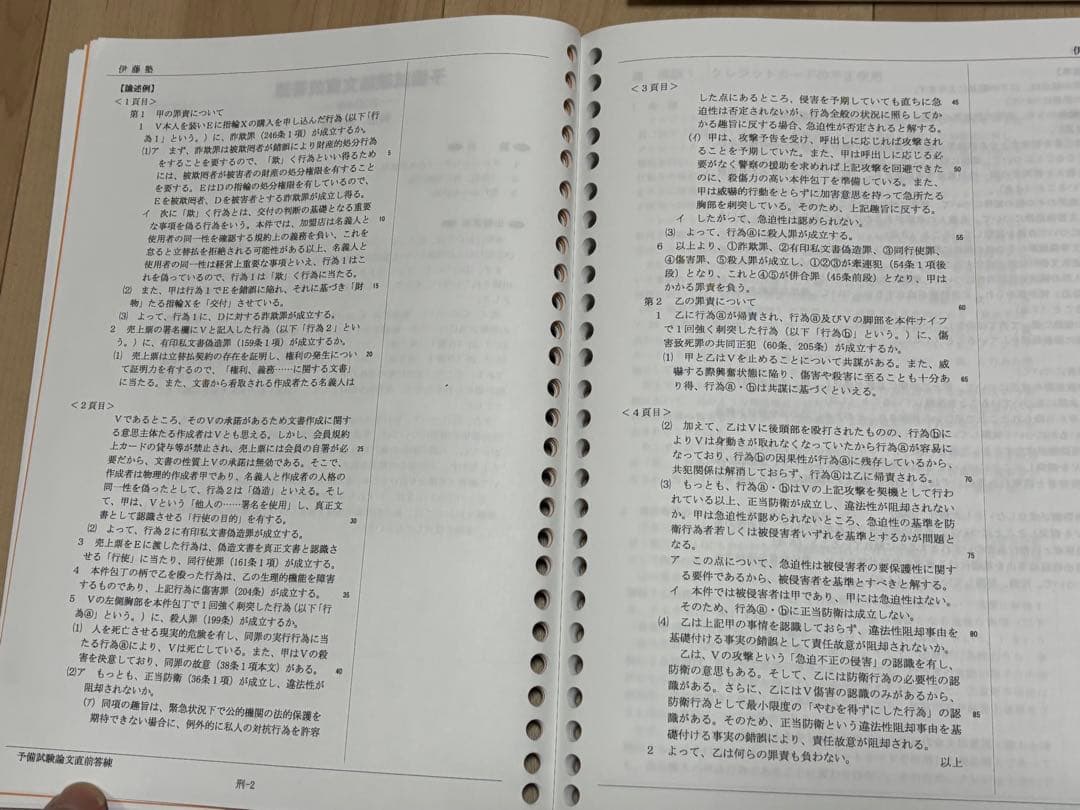 伊藤塾
【論述例】
<1頁目>
第1 甲の罪責について
1 V本人を装いEに指輪Xの購入を申し込んだ行為(以下「行
為1」という。)に、詐欺罪(246条1項)が成立するか。
⑴ア まず、詐欺罪は被欺罔者が錯誤により財産的処分行為 5
をすることを要するので、「欺」く行為といい得るため
には、被欺罔者が被害者の財産の処分権限を有すること
を要する。EはDの指輪の処分権限を有しているので、
Eを被欺罔者、Dを被害者とする詐欺罪が成立し得る。
イ 次に「欺」く行為とは、交付の判断の基礎となる重要 10
な事項を偽る行為をいう。本件では、加盟店は名義人と
使用者の同一性を確認する規約上の義務を負い、これを
怠ると立替払を拒絶される可能性がある以上、名義人と
使用者の同一性は経営上重要な事項といえ、行為1はこ
れを偽っているので、行為1は「欺」く行為に当たる。
⑵ また、甲は行為1でEを錯誤に陥れ、それに基づき「財 15
物」たる指輪Xを「交付」させている。
⑶ よって、行為1に、Dに対する詐欺罪が成立する。
2 売上票の署名欄にVと記入した行為(以下「行為2」とい
う。)に、有印私文書偽造罪(159条1項)が成立するか。
⑴ 売上票は立替払契約の存在を証明し、権利の発生につい 20
て証明力を有するので、「権利、義務……に関する文書」
に当たる。また、文書から看取される作成者たる名義人は
<2頁目>
Vであるところ、そのVの承諾があるため文書作成に関す
る意思主体たる作成者はVとも思える。しかし、会員規約
上カードの貸与等が禁止され、売上票には会員の自署が必 25
要だから、文書の性質上Vの承諾は無効である。そこで、
作成者は物理的作成者甲であり、名義人と作成者の人格の
同一性を偽ったとして、行為2は「偽造」といえる。そし
て、甲は、Vという「他人の……署名を使用」し、真正文
書として認識させる「行使の目的」を有する。 30
⑵ よって、行為2に有印私文書偽造罪が成立する。
3 売上票をEに渡した行為は、偽造文書を真正文書と認識さ
せる「行使」に当たり、同行使罪(161条1項)が成立する。
4 本件包丁の柄で乙を殴った行為は、乙の生理的機能を障害
するものであり、上記行為に傷害罪(204条)が成立する。 35
5 Vの左側胸部を本件包丁で1回強く刺突した行為(以下「行
為ⓐ」という。)に、殺人罪(199条)が成立するか。
⑴ 人を死亡させる現実的危険を有し、同罪の実行行為に当
たる行為ⓐにより、Vは死亡している。また、甲はVの殺
害を決意しており、同罪の故意(38条1項本文)がある。 40
⑵ア もっとも、正当防衛(36条1項)が成立し、違法性が
阻却されないか。
(ア) 同項の趣旨は、緊急状況下で公的機関の法的保護を
期待できない場合に、例外的に私人の対抗行為を許容
予備試験論文直前答練
刑-2
<3頁目>
した点にあるところ、侵害を予期していても直ちに急 45
迫性は否定されないが、行為全般の状況に照らしてか
かる趣旨に反する場合、急迫性が否定されると解する。
(イ) 甲は、攻撃予告を受け、呼出しに応じれば攻撃され
ることを予期していた。また、甲は呼出しに応じる必
要がなく警察の援助を求めれば上記攻撃を回避できた 50
のに、殺傷力の高い本件包丁を準備している。また、
甲は威嚇的行動をとらずに加害意思を持って急所たる
胸部を刺突している。そのため、上記趣旨に反する。
イ したがって、急迫性は認められない。
⑶ よって、行為ⓐに殺人罪が成立する。 55
6 以上より、①詐欺罪、②有印私文書偽造罪、③同行使罪、
④傷害罪、⑤殺人罪が成立し、①②③が牽連犯(54条1項後
段)となり、これと④⑤が併合罪(45条前段)となり、甲は
かかる罪責を負う。
第2 乙の罪責について 60
1 乙に行為ⓐが帰責され、行為ⓐ及びVの脚部を本件ナイフ
で1回強く刺突した行為(以下「行為ⓑ」という。)に、傷
害致死罪の共同正犯(60条、205条)が成立するか。
⑴ 甲と乙はVを止めることについて共謀がある。また、威
嚇する際興奮状態に陥り、傷害や殺害に至ることも十分あ 65
り得、行為ⓐ・ⓑは共謀に基づくといえる。
<4頁目>
⑵ 加えて、乙はVに後頭部を殴打されたものの、行為ⓑに
よりVは身動きが取れなくなっていたから行為ⓐが容易に
なっており、行為ⓑの因果性が行為ⓐに残存しているから、
共犯関係は解消しておらず、行為ⓐは乙に帰責される。 70
⑶ もっとも、行為ⓐ・ⓑはVの上記攻撃を契機として行わ
れている以上、正当防衛が成立し、違法性が阻却されない
か。甲は急迫性が認められないところ、急迫性の基準を防
衛行為者若しくは被侵害者いずれを基準とするかが問題と
なる。 75
ア この点について、急迫性は被侵害者の要保護性に関す
る要件であるから、被侵害者を基準とすべきと解する。
イ 本件では被侵害者は甲であり、甲には急迫性はない。
そのため、行為ⓐ・ⓑに正当防衛は成立しない。
⑷ 乙は上記甲の事情を認識しておらず、違法性阻却事由を 80
基礎付ける事実の錯誤として責任故意が阻却されないか。
乙は、Vの攻撃という「急迫不正の侵害」の認識を有し、
防衛の意思もある。そして、乙には防衛行為の必要性の認
識がある。さらに、乙にはV傷害の認識のみがあるから、
防衛行為として最小限度の「やむを得ずにした行為」の認 85
識がある。そのため、正当防衛という違法性阻却事由を基
礎付ける事実の錯誤により、責任故意が阻却される。
2 よって、乙は何らの罪責も負わない。 以上